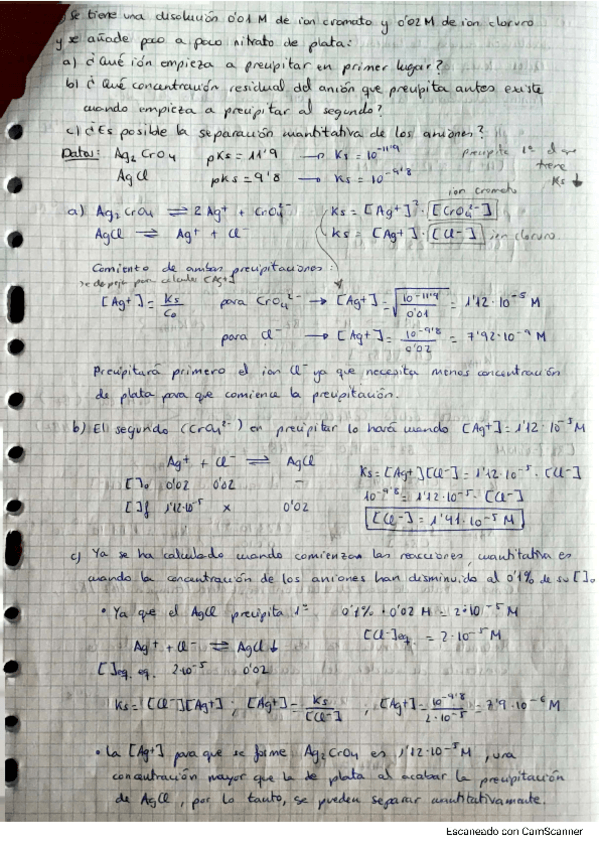 Se tiene una disolución 0'01 M de ion cromato y 0'02 M de ion cloruro
y se añade poco a poco nitrato de plata:
a) ¿Qué ión empieza a precipitar en primer lugar?
b) ¿Qué concentración residual del anión que precipita antes existe
cuando empieza a precipitar al segundo?
c) ¿Es posible la separación cuantitativa de los aniones?
Datos: Ag₂CrO₄ pKs = 11'9 → Ks = 10^-11'9
precipita 1º el que tiene Ks ↓
AgCl pKs = 9'8 → Ks = 10^-9'8
ion cromato
a) Ag₂CrO₄ ⇌ 2Ag⁺ + CrO₄²⁻ Ks = [Ag⁺]² · [CrO₄²⁻]
AgCl ⇌ Ag⁺ + Cl⁻ Ks = [Ag⁺] · [Cl⁻] ion cloruro
Comiento de ambas precipitaciones:
se despeja para calcular [Ag⁺]
[Ag⁺] = Ks/C₀ para CrO₄²⁻ → [Ag⁺] = √(10^-11'9/0'01) = 1'12·10⁻⁵ M
para Cl⁻ → [Ag⁺] = 10^-9'8/0'02 = 7'92·10⁻⁹ M
Precipitará primero el ion Cl⁻ ya que necesita menos concentración
de plata para que comience la precipitación.
b) El segundo (CrO₄²⁻) en precipitar lo hará cuando [Ag⁺] = 1'12·10⁻⁵ M
Ag⁺ + Cl⁻ ⇌ AgCl Ks = [Ag⁺][Cl⁻] = 1'12·10⁻⁵ · [Cl⁻]
[ ]₀ 0'02 0'02 – 10^-9'8 = 1'12·10⁻⁵ · [Cl⁻]
[ ]f 1'12·10⁻⁵ x 0'02 [Cl⁻] = 1'41·10⁻⁵ M
c) Ya se ha calculado cuando comienzan las reacciones, cuantitativa es
cuando la concentración de los aniones han desminuido al 0'1% de su [ ]₀
• Ya que el AgCl precipita 1º 0'1% · 0'02 M = 2·10⁻⁵ M
Ag⁺ + Cl⁻ ⇌ AgCl↓ [Cl⁻]eq. = 2·10⁻⁵ M
[ ]eq. eq. 2·10⁻⁵ 0'02
Ks = [Cl⁻][Ag⁺] ; [Ag⁺] = Ks/[Cl⁻] ; [Ag⁺] = 10^-9'8/2·10⁻⁵ = 7'9·10⁻⁶ M
• La [Ag⁺] para que se forme Ag₂CrO₄ es 1'12·10⁻⁵ M, una
concentración mayor que la de plata al acabar la precipitación
de AgCl, por lo tanto, se pueden separar cuantitativamente.
Escaneado con CamScanner